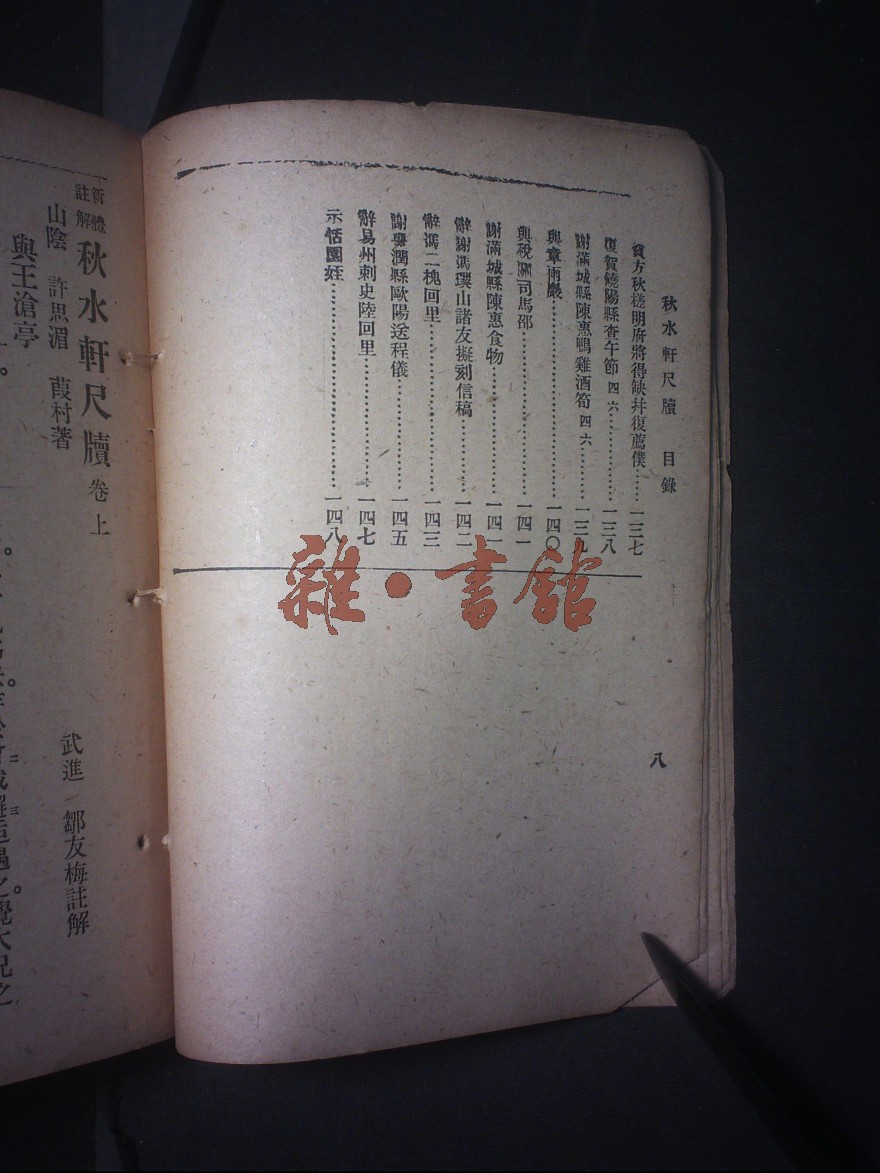 秋水軒尺牘　目錄
賀方秋槎明府將得缺幷復薦僕……一三七
復賀饒陽縣查午節四六……一三八
謝滿城縣陳惠鴨雞酒筍四六……一三九
與章雨巖……一四〇
與稅關司馬邵……一四一
謝滿城縣陳惠食物……一四一
辭謝馮璞山諸友擬刻信稿……一四二
辭馮二槐回里……一四三
謝豐潤縣歐陽送程儀……一四五
辭易州刺史陸回里……一四七
示恬園姪……一四八
八
雜·書館
新體註解 秋水軒尺牘 卷上
山陰 許思湄 葭村著
武進 鄒友梅註解
與王滄亭